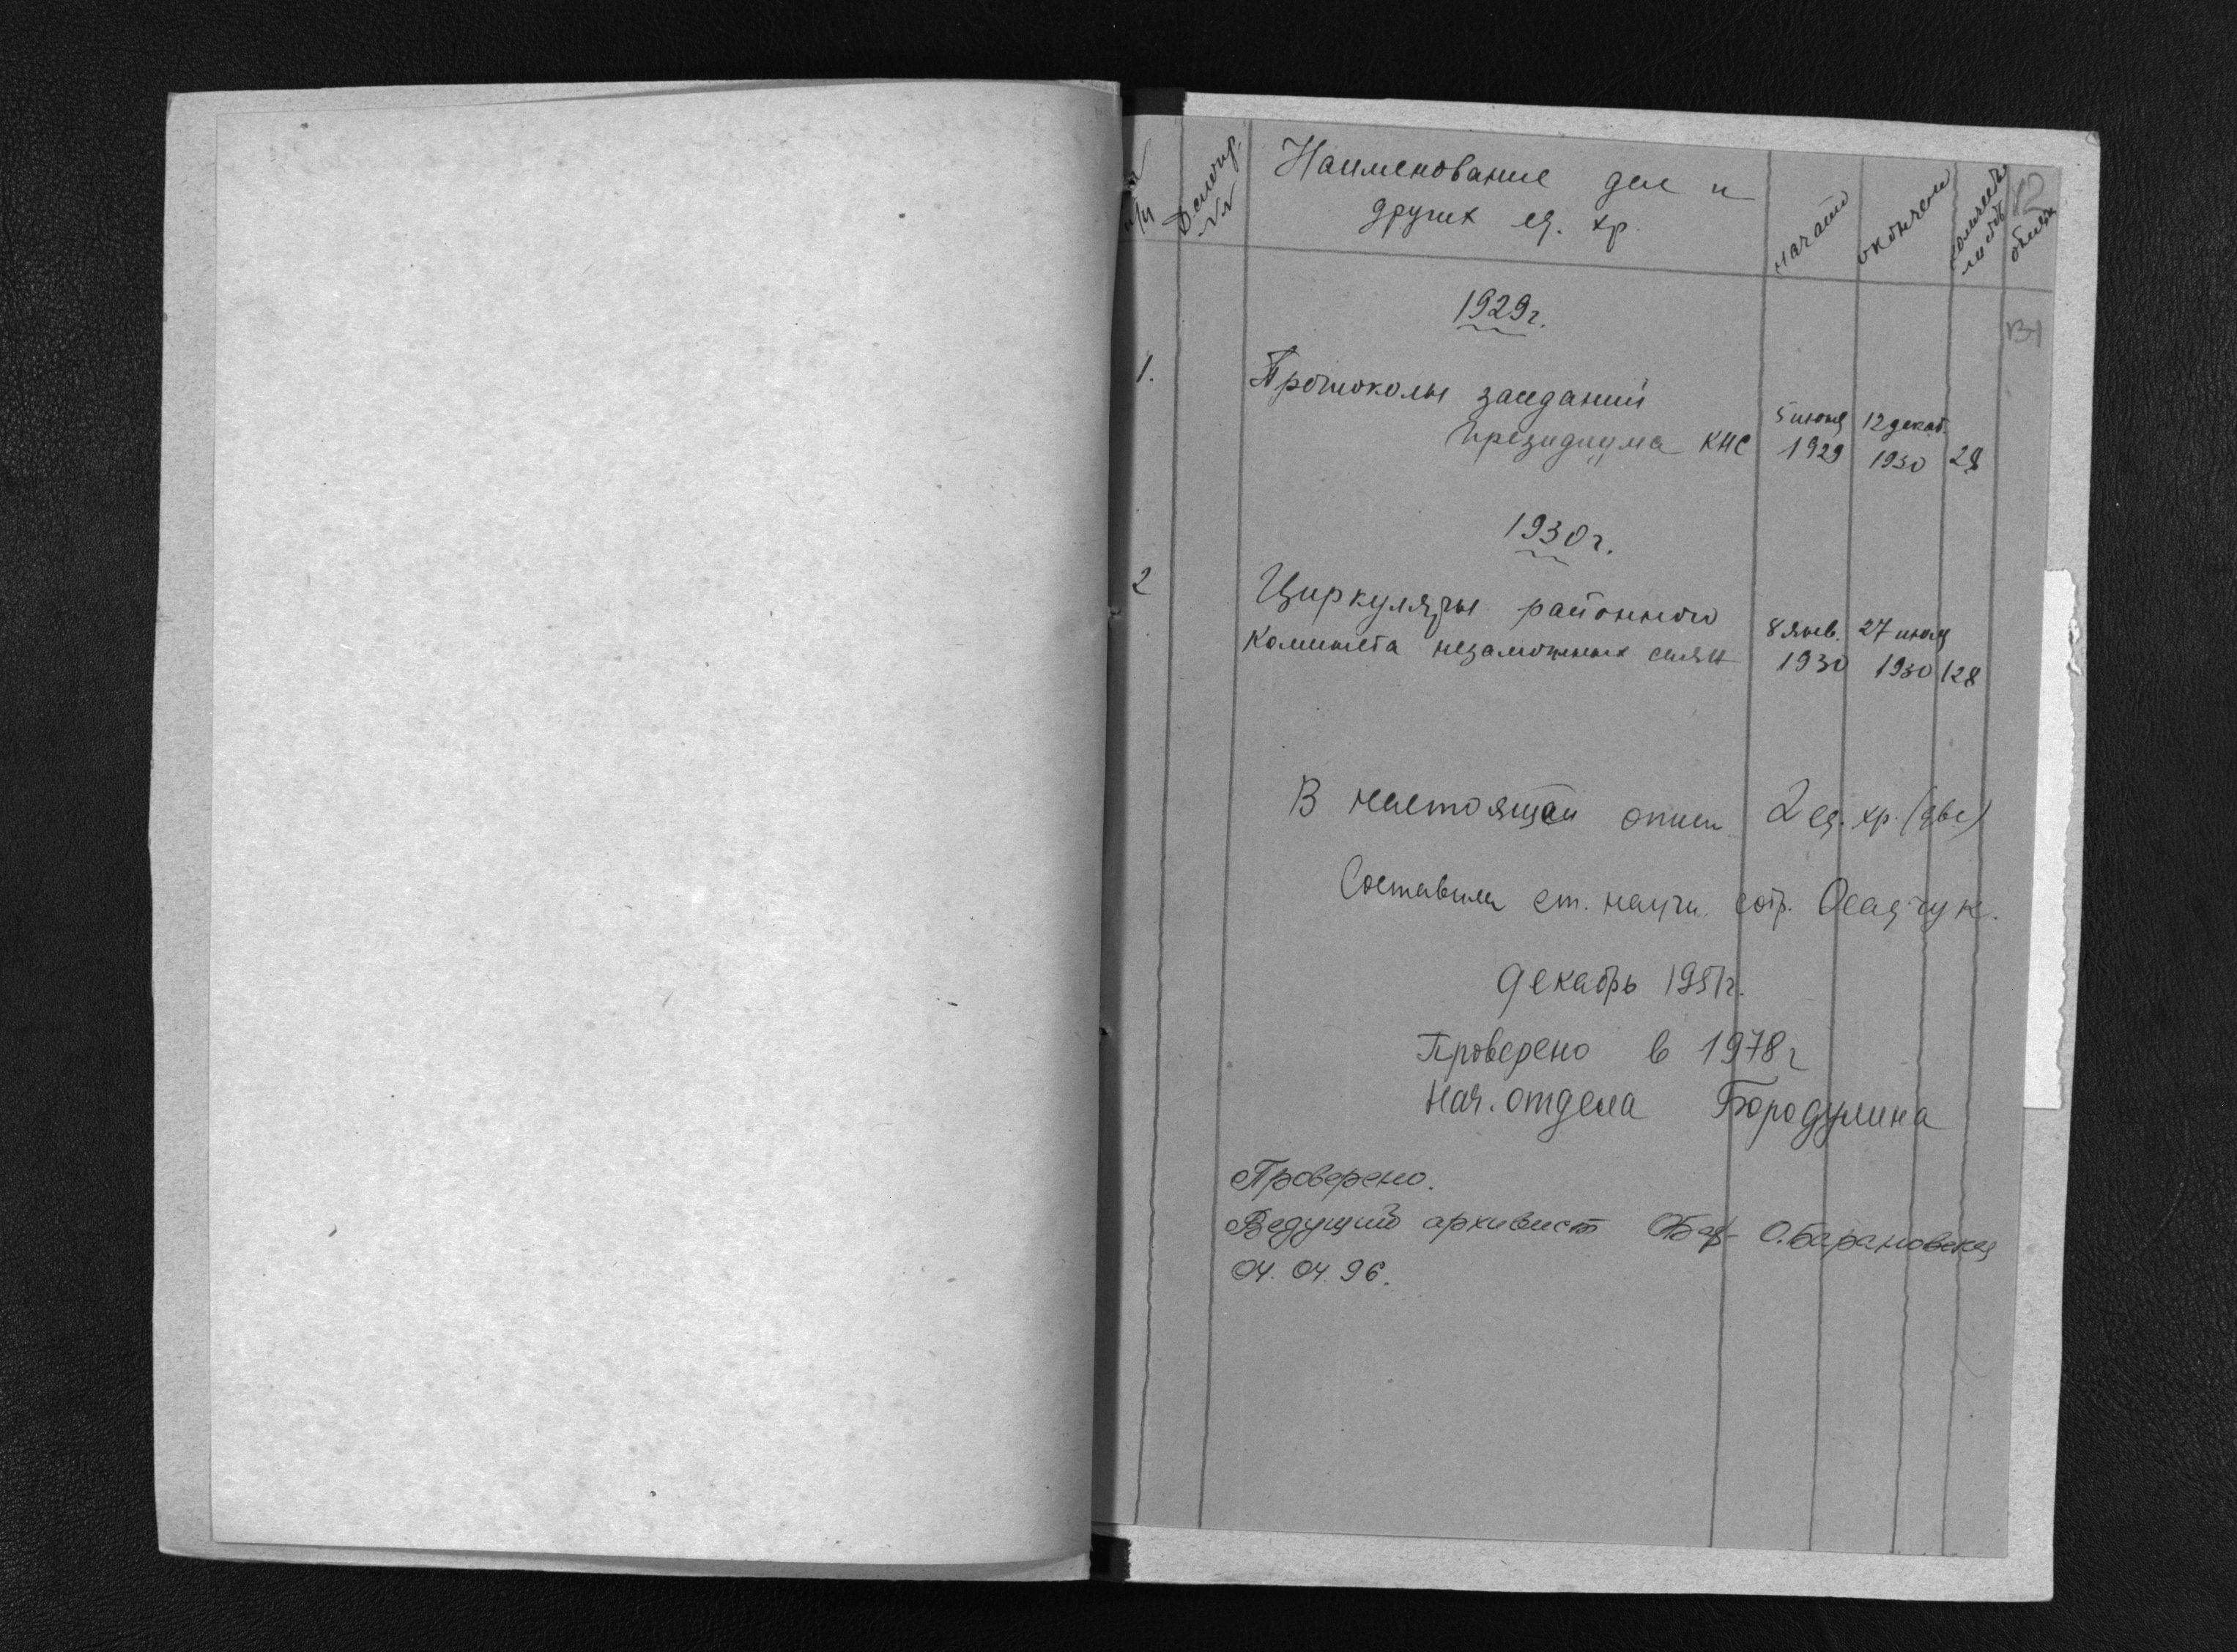 №№ п/п
Делопр. №№
Наименование дел и
других ед. хр.
начато
окончено
количество листов
12
1.
1929г.
Протоколы заседаний
президиума КНС
5 июня 1929
12 декаб. 1930
28
1930г.
2
Циркуляры районного
комитета незаможных селян
8 янв. 1930
27 июля 1930
128
В настоящей описи 2 ед. хр. (две)
Составила ст. научн. сотр. Осадчук.
декабрь 1951г.
Проверено в 1978г
Нач. отдела Бородулина
Проверено.
Ведущий архивист О. Барановская
04. 04. 96.